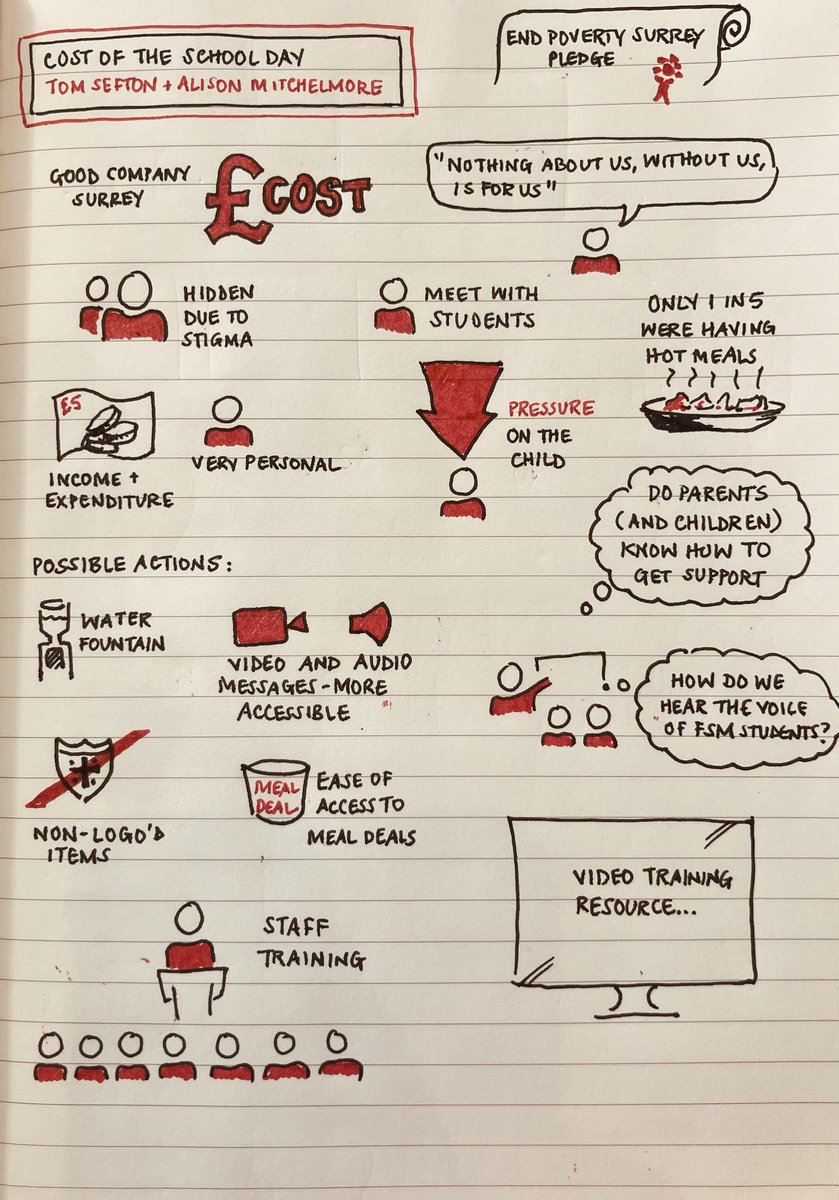 COST OF THE SCHOOL DAY
TOM SEFTON + ALISON MITCHELMORE
END POVERTY SURREY
PLEDGE
GOOD COMPANY
SURREY
£ COST
"NOTHING ABOUT US, WITHOUT US,
IS FOR US"
HIDDEN
DUE TO
STIGMA
MEET WITH
STUDENTS
ONLY 1 IN 5
WERE HAVING
HOT MEALS
£5
INCOME +
EXPENDITURE
VERY PERSONAL
PRESSURE
ON THE
CHILD
DO PARENTS
(AND CHILDREN)
KNOW HOW TO
GET SUPPORT
POSSIBLE ACTIONS:
WATER
FOUNTAIN
VIDEO AND AUDIO
MESSAGES - MORE
ACCESSIBLE
HOW DO WE
HEAR THE VOICE
OF FSM STUDENTS?
NON-LOGO'D
ITEMS
MEAL
DEAL
EASE OF
ACCESS TO
MEAL DEALS
VIDEO TRAINING
RESOURCE...
STAFF
TRAINING